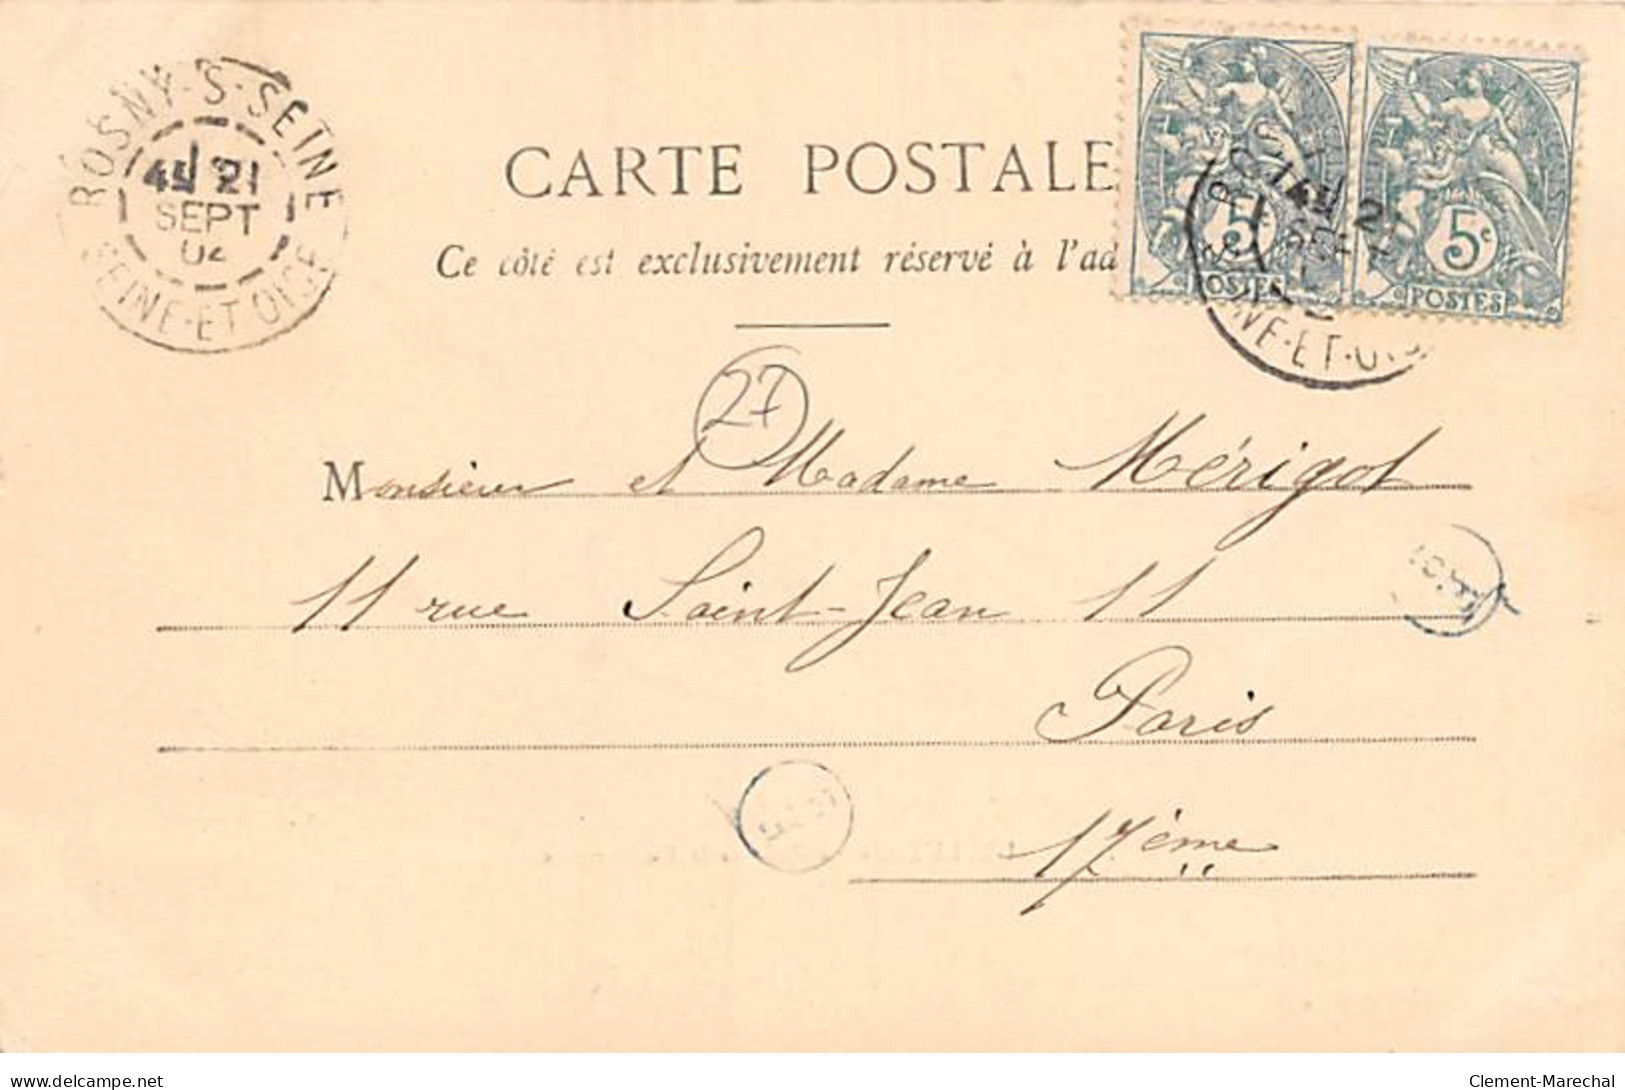 ROSNY-S-SEINE
21
SEPT
SEINE-ET-OISE
CARTE POSTALE
Ce côté est exclusivement réservé à l'ad
5 5c
POSTES POSTES
27
Monsieur et Madame Mérigot
11 rue Saint-Jean 11
Paris
17ème
delcampe.net
Clement-Marechal